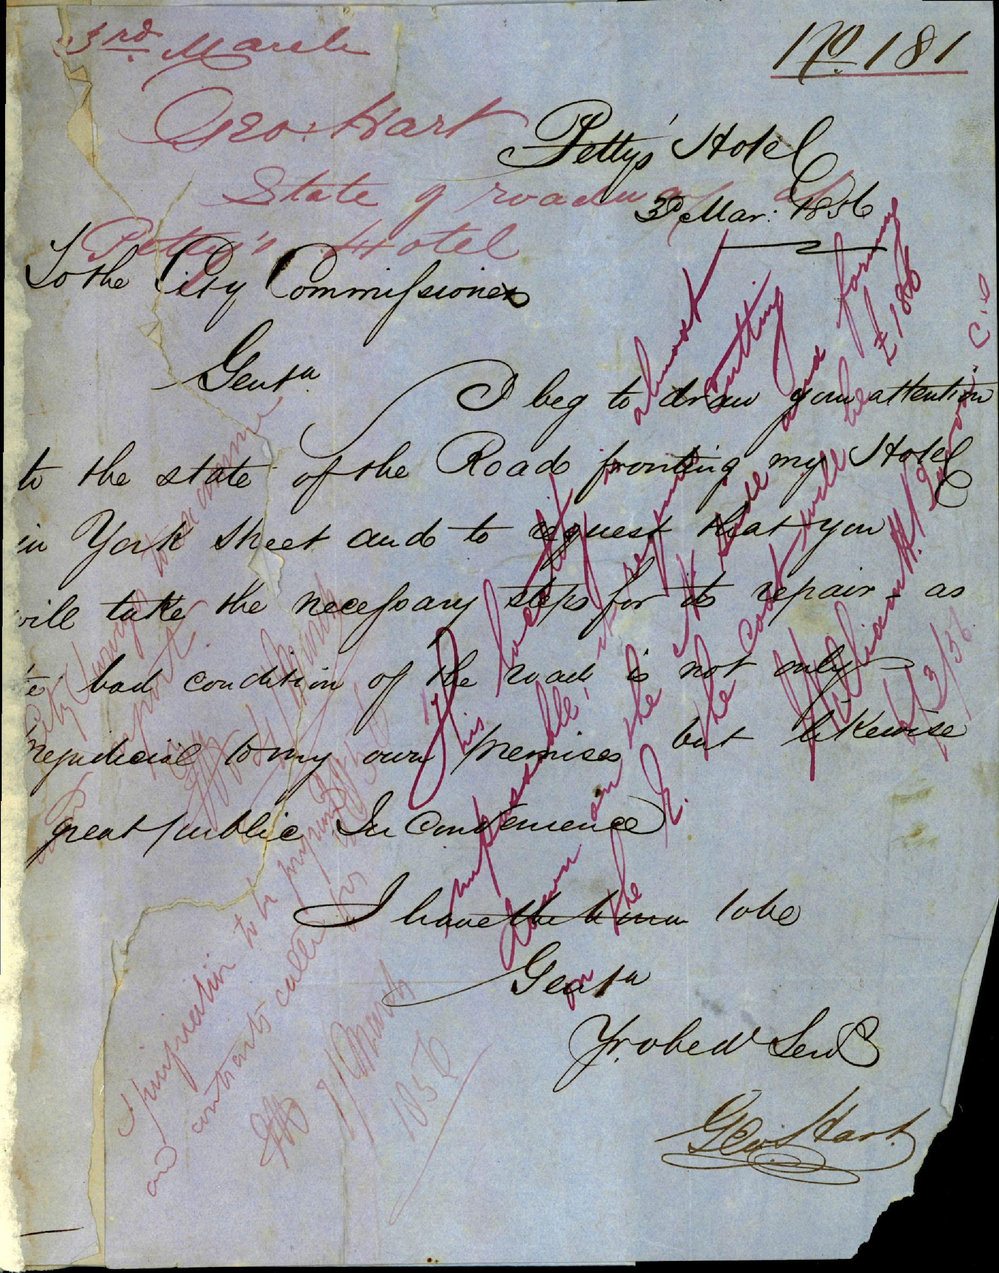 3rd March
No 181
Geo: Hart
State of roadway at
Petty's Hotel
Petty's Hotel
3d Mar: 1856
To the City Commissioners
Gentn
I beg to draw your attention
to the state of the Road fronting my Hotel
in York Street and to request that you
will take the necessary steps for its repair, as
bad condition of the road is not only
prejudicial to my own premises but likewise
great public Inconvenience
I have the honor to be
Gentn
Yr. obedt Servt
Geo Hart.
This locality is almost
impassable, it requires cutting
down and forming
the
on the cost will be £186
6/3/56
City Surveyor to examine
and report
4 March
Specification to be prepared
and contracts called for
7 March
1856